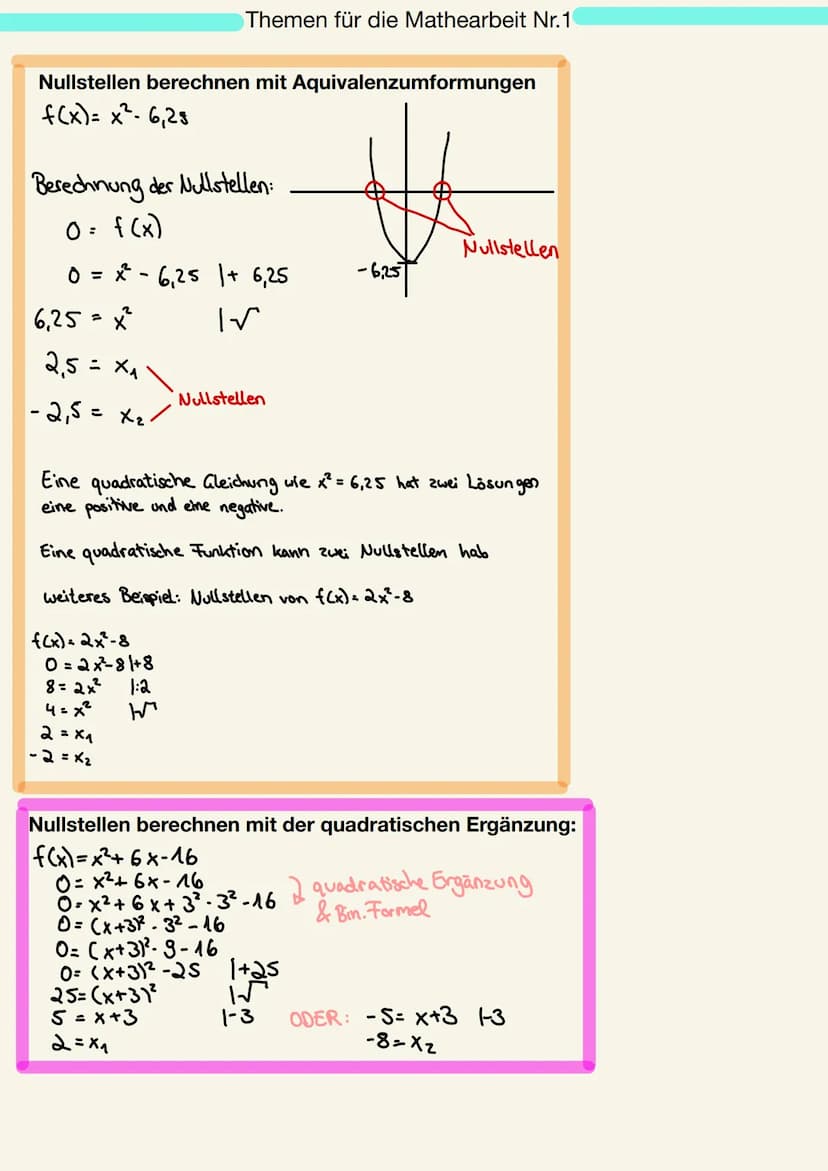 Themen für die Mathearbeit Nr.1
Nullstellen berechnen mit Aquivalenzumformungen
f(x)= x²- 6,25
Berechnung der Nullstellen:
0 = f(x)
0 = x² - 6,25 |+ 6,25
6,25 = x² |√
2,5 = x₁
-2,5 = x₂
Nullstellen
-6,25
Nullstellen
Eine quadratische Gleichung wie x² = 6,25 hat zwei Lösungen
eine positive und eine negative.
Eine quadratische Funktion kann zwei Nullstellen hab
weiteres Beispiel: Nullstellen von f(x)= 2x²-8
f(x)= 2x²-8
0 = 2x²-8 |+8
8 = 2x² |:2
4 = x² |√
2 = x₁
-2 = x₂
Nullstellen berechnen mit der quadratischen Ergänzung:
f(x)=x²+ 6x-16
0= x²+ 6x- 16
0= x²+ 6x+ 3² - 3² -16
quadratische Ergänzung
& Bin. Formel
0= (x+3)² - 3² - 16
0= (x+3)²- 9-16
0= (x+3)² -25 |+25
25=(x+3)² |√
5 = x+3 |-3 ODER: -5= x+3 |-3
2 = x₁ -8 = x₂